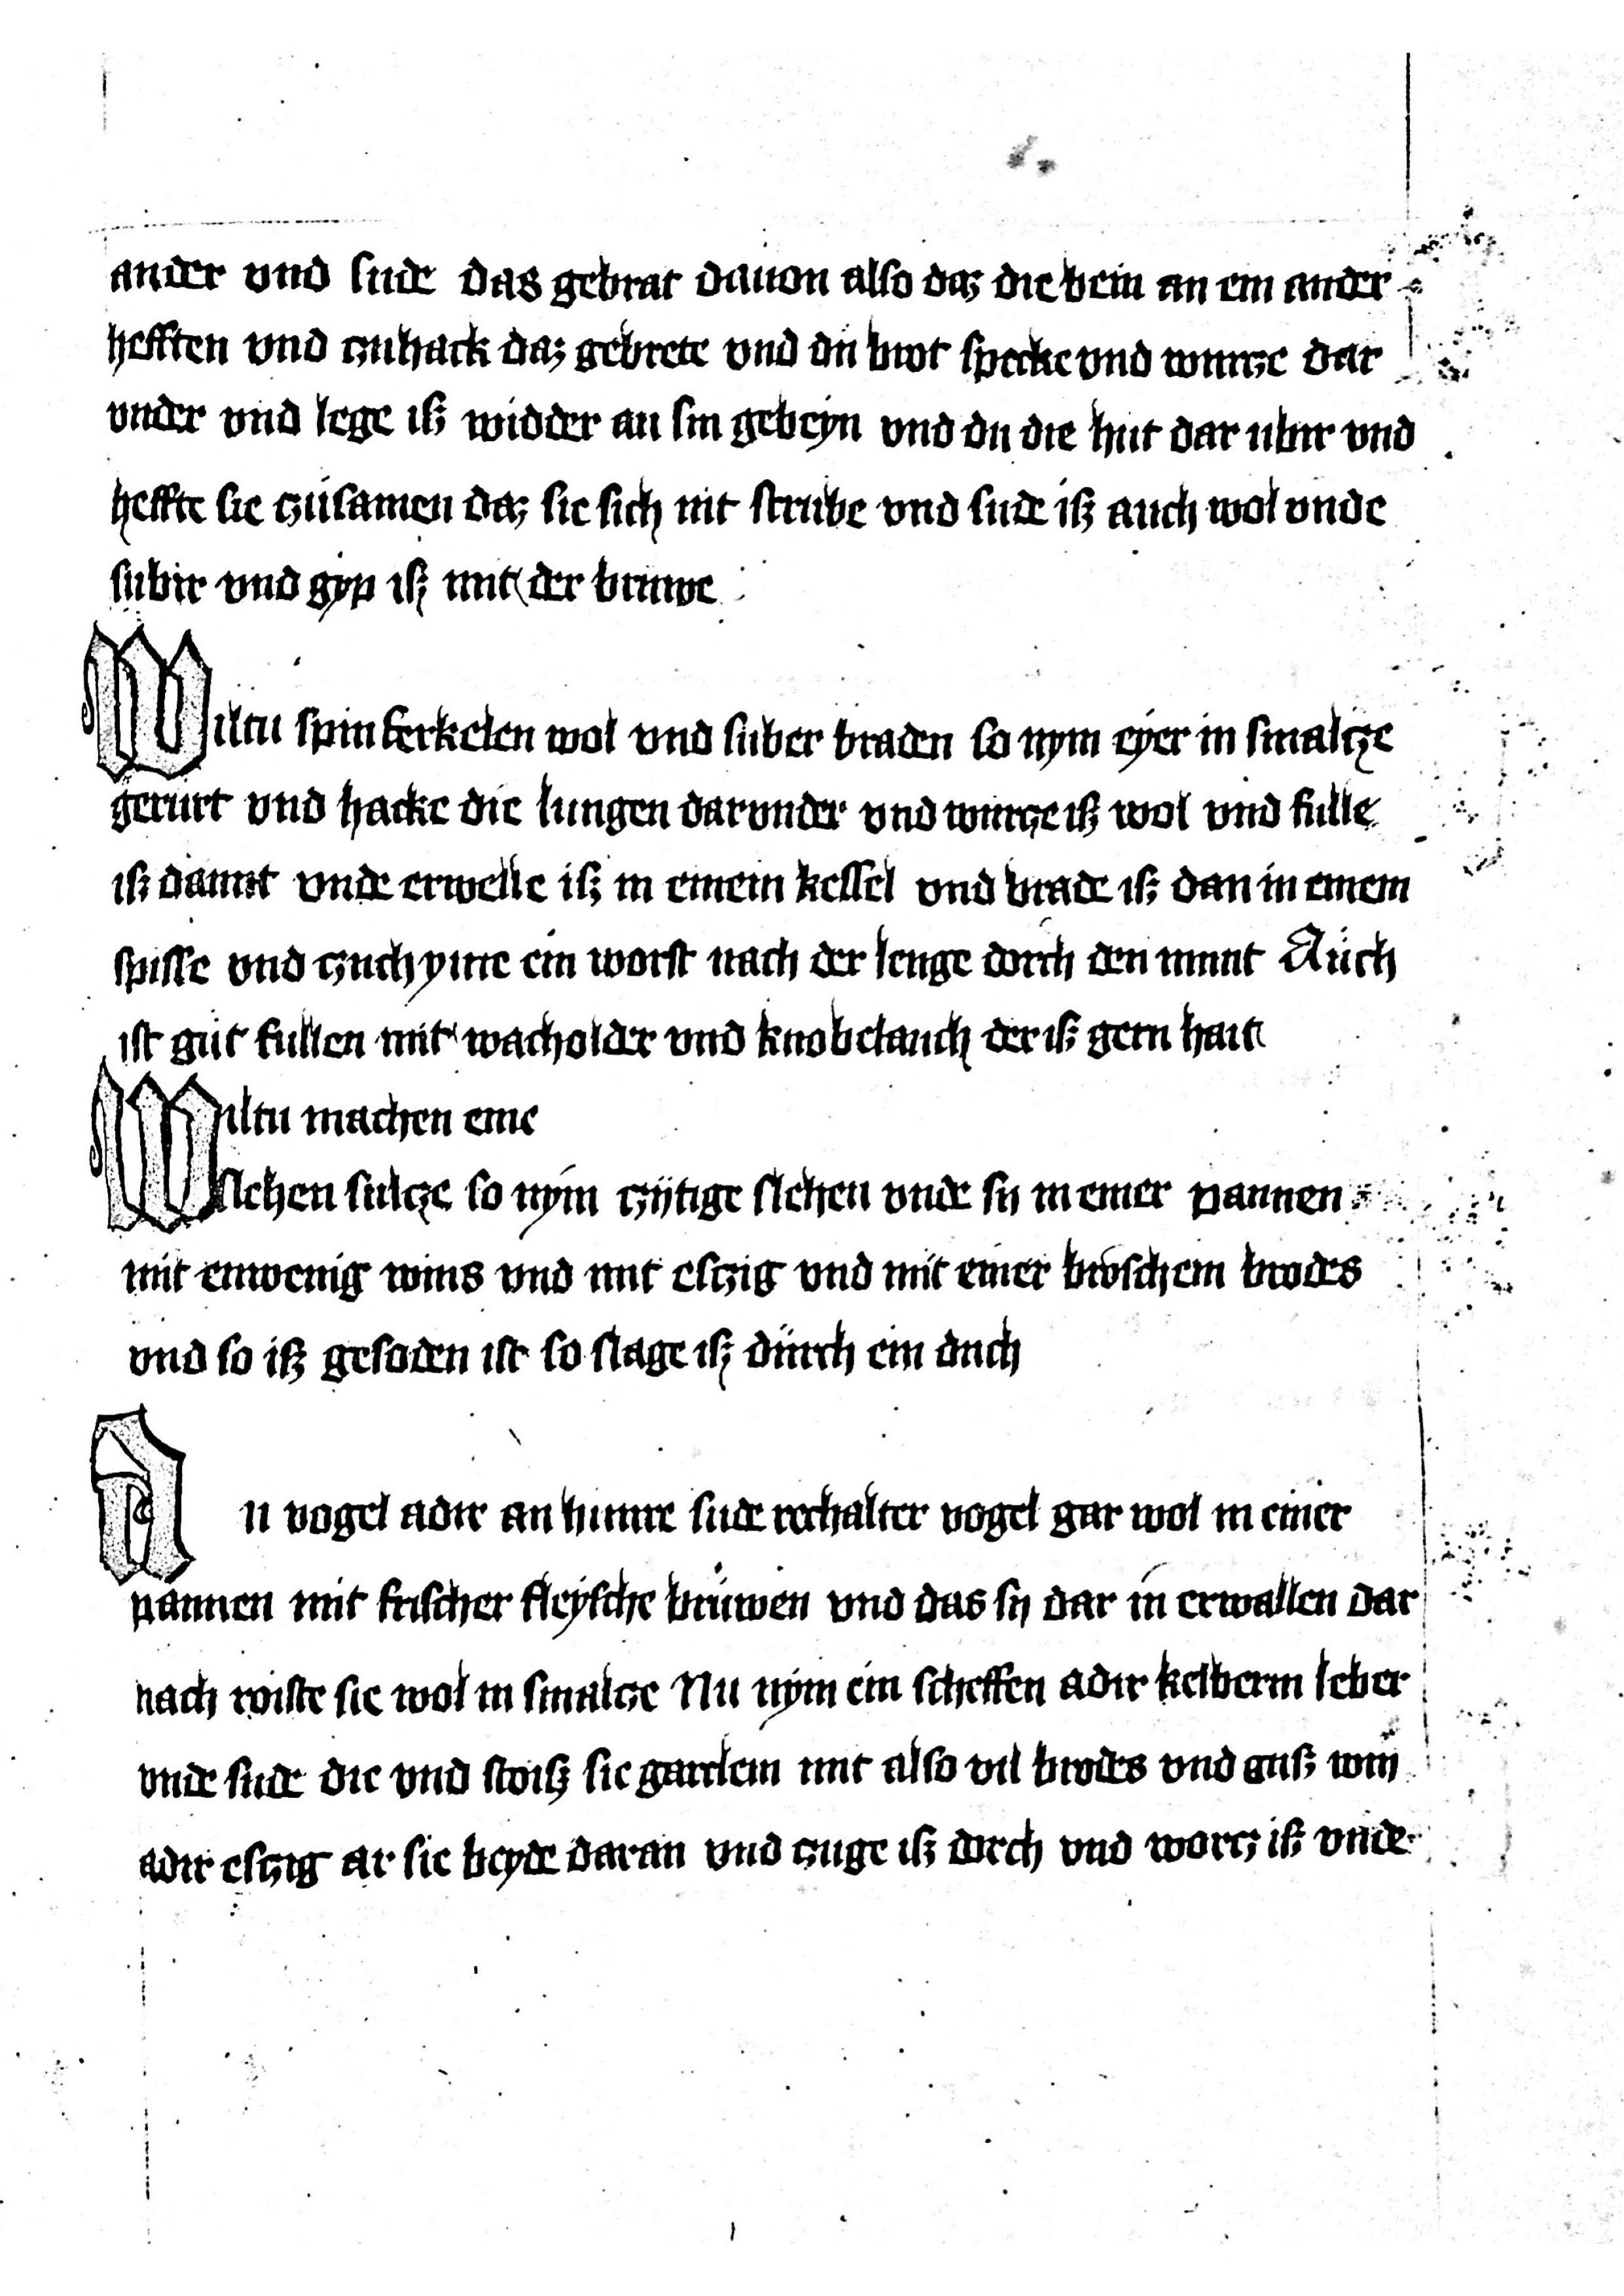 ander vnd sude das gebrat dauon also daz die bein an ein ander
hefften vnd zuhack daz gebrete vnd du brot specke vnd wurtze dar
vnder vnd lege iß widder an sin gebeyn vnd du die hut dar ubir vnd
heffte sie zusamen daz sie sich nit strube vnd sude iß auch wol vnde
subir vnd gyp iß mit der bruwe
Wiltu spinferkelen wol vnd suber braden so nym eyer in smaltze
gerurt vnd hacke die lungen darvnder vnd wurtze iß wol vnd fulle
iß damit vnde erwelle iß in einem kessel vnd brade iß dan in einem
spisse vnd zuch yme ein worst nach der lenge dorch den munt Auch
ist gut fullen mit wacholder vnd knobelauch der iß gern hait
Wiltu machen eine
slehen sultze so nym zytige slehen vnde sy in einer pannen
mit einwenig wins vnd mit eszig vnd mit einer broschem brodes
vnd so iß gesoden ist so slage iß durch ein duch
An vogel adir an hunre sude rechalter vogel gar wol in einer
pannen mit frischer fleysche bruwen vnd das sy dar in erwallen dar
nach roiste sie wol in smaltze Nu nym ein scheffen adir kelberin leber
vnde sude die vnd stoiß sie garclein mit also vil brodes vnd guß win
adir eszig ar sie beyde daran vnd zuge iß dorch vnd wortz iß vnde